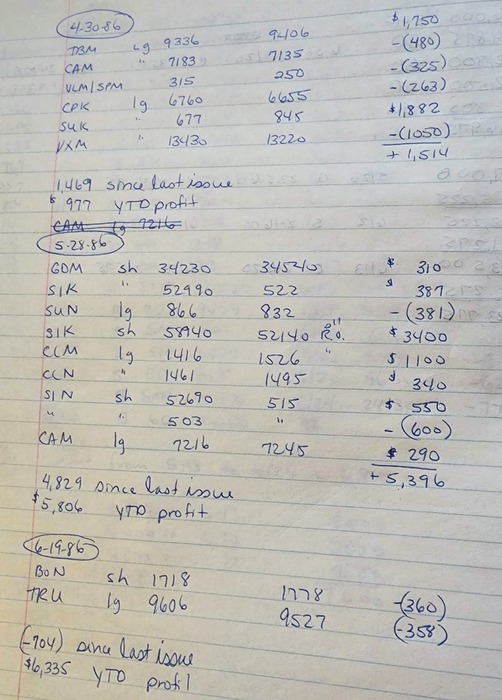 4-30-86
TBM Lg 9336 9406 $1,750
CAM " 7183 7135 -(480)
VLM/SPM 315 250 -(325)
CPK lg 6760 6655 -(263)
SUK " 677 845 $1,882
VXM " 13430 13220 -(1050)
+ 1,514
1,469 since last issue
$ 977 YTD profit
CAM lg 7216
5-28-86
GDM sh 34230 34540 $ 310
SIK " 52990 522 $ 387
SUN lg 866 832 -(381)
SIK sh 58940 52140 R.O. " $3400
CCM lg 1416 1526 " $1100
CCN " 1461 1495 $ 340
SIN sh 52690 515 $ 550
" " 503 " -(600)
CAM lg 7216 7245 $ 290
+5,396
4,829 since last issue
$5,806 YTD profit
6-19-86
BON sh 1718 1778 -(360)
TRU lg 9606 9527 (-358)
(-704) since last issue
$6,335 YTD profit